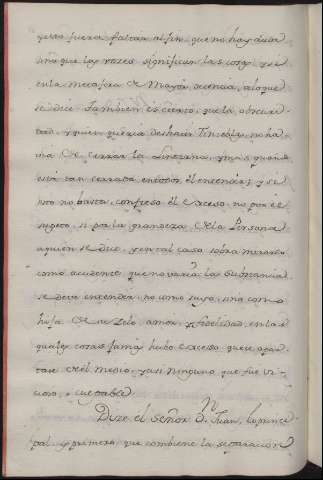 yerro fuera faltar al fin, que no hay duda
sino que las voces significan las cosas, y se
en la metafora de Mayor, aloque
se dice tambien es cierto, que la obscuri-
dad, y quien queria deshacer Tinieblas, no ha-
via de cerrar la, y mas quando
está tan cerrada en todos él entender; y si
esto no basta, confieso él exceso, no por el
sugeto, si por la grandeza de la Persona
a quien se dice, y en tal caso sobra mirarlo
como accidente que no varia la substancia
se deve entender, no como suyo, sino como
hijo de su Zelo, amor, y fidelidad, en las
quales cosas jamas hubo exceso que se apar-
tase del medio, y asi ninguno que fue vi-
cioso, o culpable
Dize el Señor Dn. Juan, lo princi-
pal, y primero, que combiene la separacion